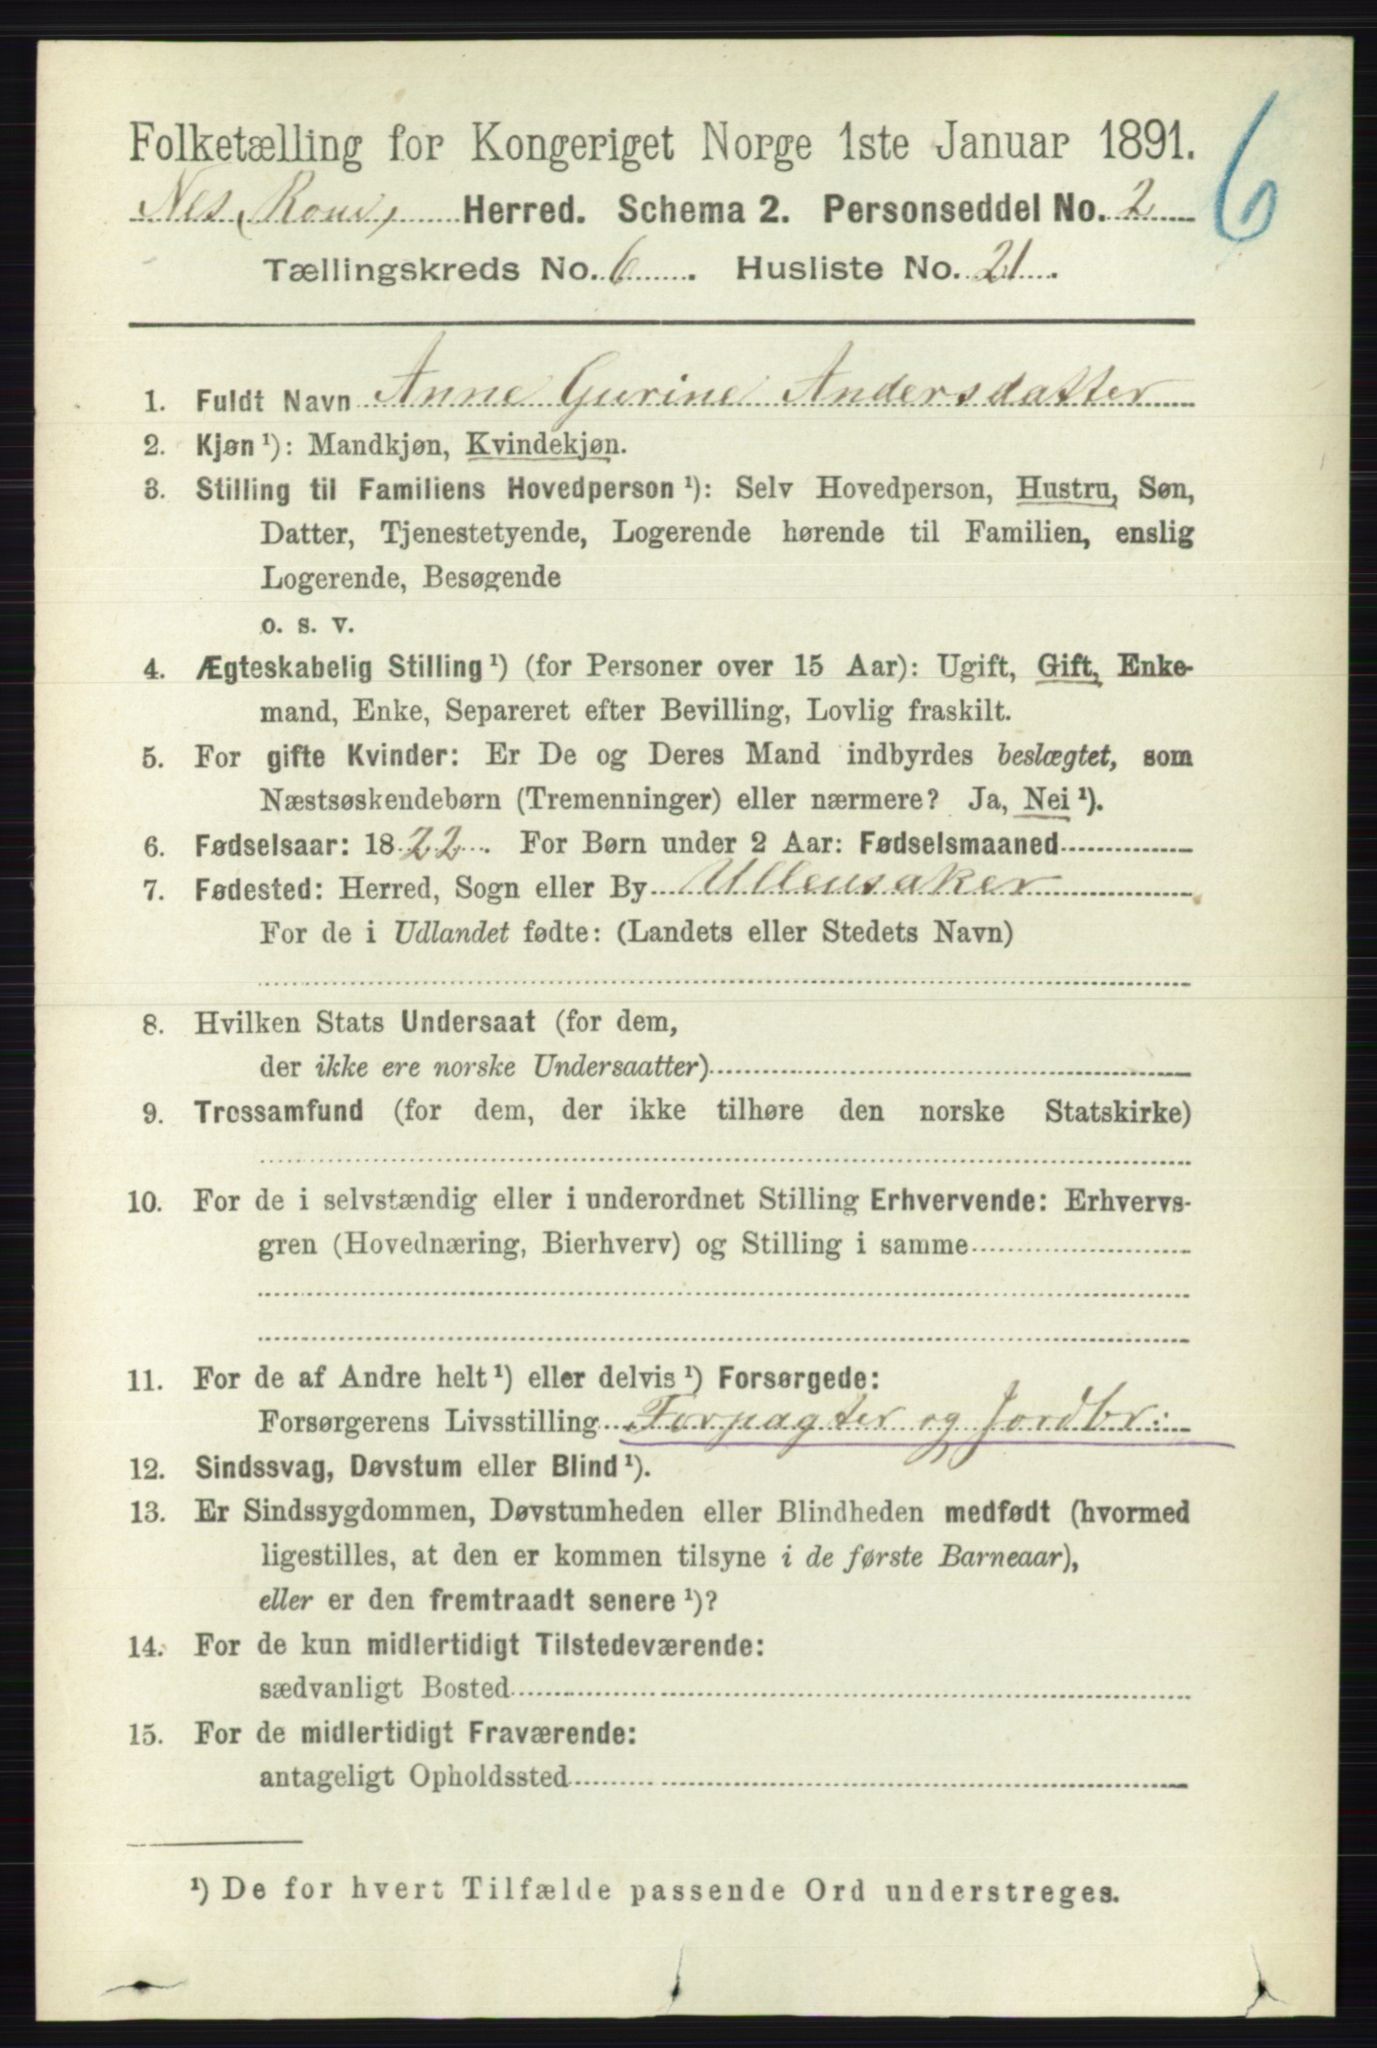 Folketælling for Kongeriget Norge 1ste Januar 1891.
6
Nes (Rom), Herred. Schema 2. Personseddel No. 2
Tællingskreds No. 6. Husliste No. 21.
1. Fuldt Navn Anne Gurine Andersdatter
2. Kjøn ¹): Mandkjøn, Kvindekjøn.
3. Stilling til Familiens Hovedperson ¹): Selv Hovedperson, Hustru, Søn,
Datter, Tjenestetyende, Logerende hørende til Familien, enslig
Logerende, Besøgende
o. s. v.
4. Ægteskabelig Stilling ¹) (for Personer over 15 Aar): Ugift, Gift, Enke-
mand, Enke, Separeret efter Bevilling, Lovlig fraskilt.
5. For gifte Kvinder: Er De og Deres Mand indbyrdes beslægtet, som
Næstsøskendebørn (Tremenninger) eller nærmere? Ja, Nei ¹).
6. Fødselsaar: 1822. For Børn under 2 Aar: Fødselsmaaned
7. Fødested: Herred, Sogn eller By Ullensaker
For de i Udlandet fødte: (Landets eller Stedets Navn)
8. Hvilken Stats Undersaat (for dem,
der ikke ere norske Undersaatter)
9. Trossamfund (for dem, der ikke tilhøre den norske Statskirke)
10. For de i selvstændig eller i underordnet Stilling Erhvervende: Erhvervs-
gren (Hovednæring, Bierhverv) og Stilling i samme
11. For de af Andre helt ¹) eller delvis ¹) Forsørgede:
Forsørgerens Livsstilling Forpagter og Jordbr:
12. Sindssvag, Døvstum eller Blind ¹).
13. Er Sindssygdommen, Døvstumheden eller Blindheden medfødt (hvormed
ligestilles, at den er kommen tilsyne i de første Barneaar),
eller er den fremtraadt senere ¹)?
14. For de kun midlertidigt Tilstedeværende:
sædvanligt Bosted
15. For de midlertidigt Fraværende:
antageligt Opholdssted
¹) De for hvert Tilfælde passende Ord understreges.